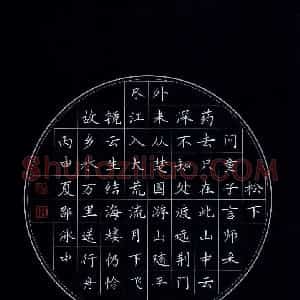 松下
问童子言师采
药去只在此山中云
深不知处渡远荆门
外来从楚国游山随平
尽江入大荒流月下飞
镜云生结海楼仍怜
故乡水万里送行舟
丙申夏